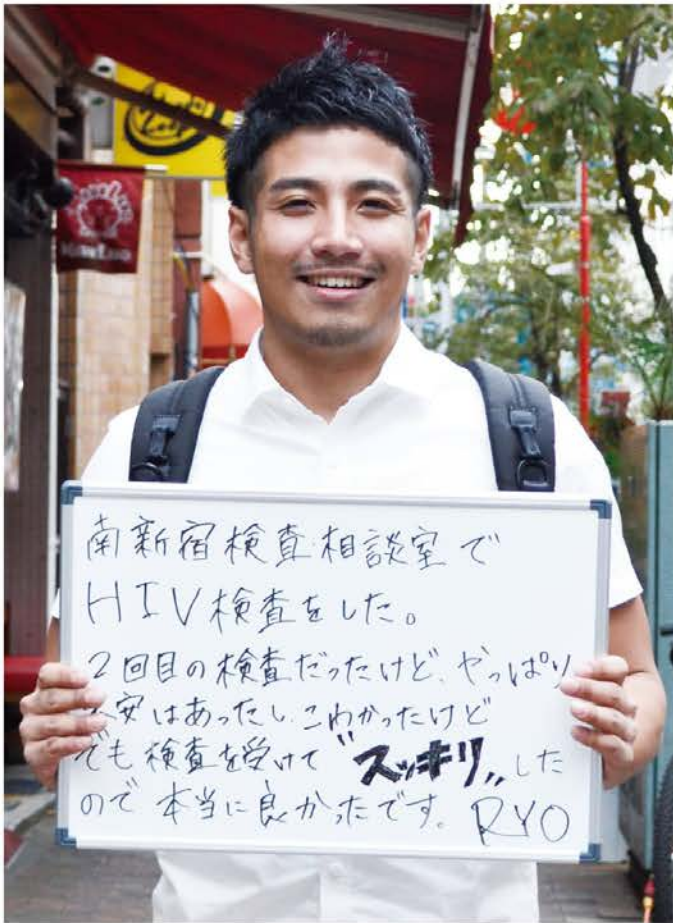 南新宿検査・相談室で
HIV検査をした。
2回目の検査だったけど、やっぱり
安はあったし、こわかったけど
でも検査を受けて"スッキリ„した
ので本当に良かったです。RYO